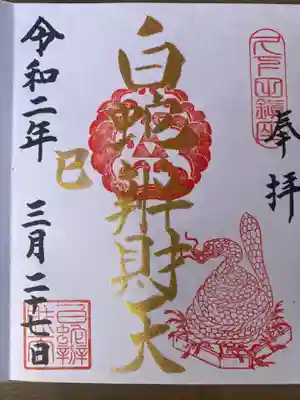 奉拝
白蛇辨財天
巳
令和二年 三月二十七日